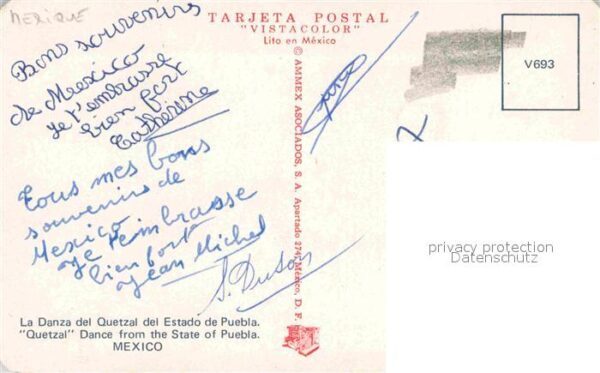 MEXIQUE
TARJETA POSTAL
"VISTACOLOR"
Lito en México
V693
Bons souvenirs
de Mexico
Je t'embrasse
bien fort
Catherine
© AMMEX ASOCIADOS, S. A. Apartado 2747, México, D. F.
Tous mes bons
souvenirs de
Mexico
Je t'embrasse
bien fort
Jean Michel
privacy protection
Datenschutz
La Danza del Quetzal del Estado de Puebla.
"Quetzal" Dance from the State of Puebla.
MEXICO